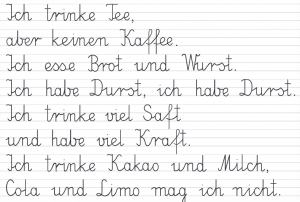 Ich trinke Tee,
aber keinen Kaffee.
Ich esse Brot und Wurst.
Ich habe Durst, ich habe Durst.
Ich trinke viel Saft
und habe viel Kraft.
Ich trinke Kakao und Milch,
Cola und Limo mag ich nicht.